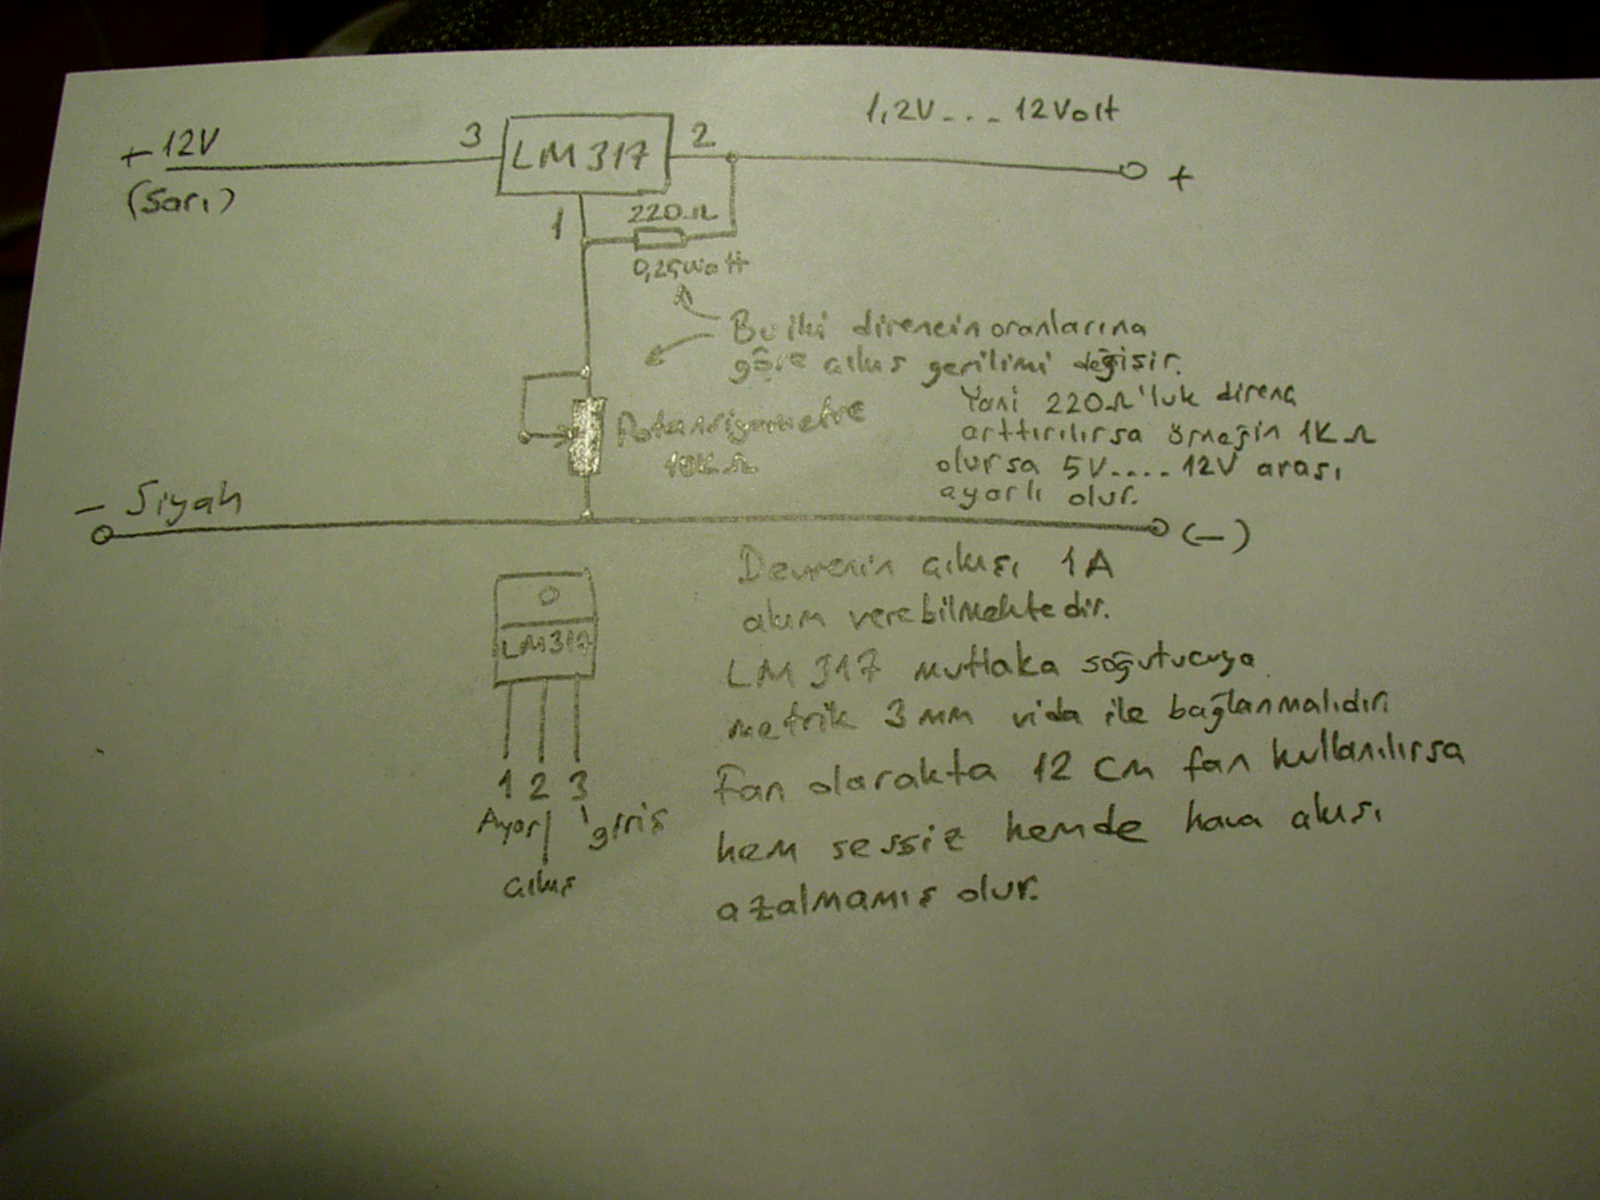 1,2V... 12Volt
+ 12V
(Sarı)
3
LM 317
2
+
1
220Ω
0,25watt
Bu iki direncin oranlarına
göre çıkış gerilimi değişir.
Yani 220Ω'luk direnç
arttırılırsa örneğin 1KΩ
olursa 5V.... 12V arası
ayarlı olur.
Potansiyometre
10KΩ
- Siyah
(-)
Devrenin çıkışı 1A
akım verebilmektedir.
LM 317 mutlaka soğutucuya
metrik 3 mm vida ile bağlanmalıdır.
Fan olarakta 12 cm fan kullanılırsa
hem sessiz hemde hava akışı
azalmamış olur.
LM317
1 2 3
Ayar giriş
çıkış